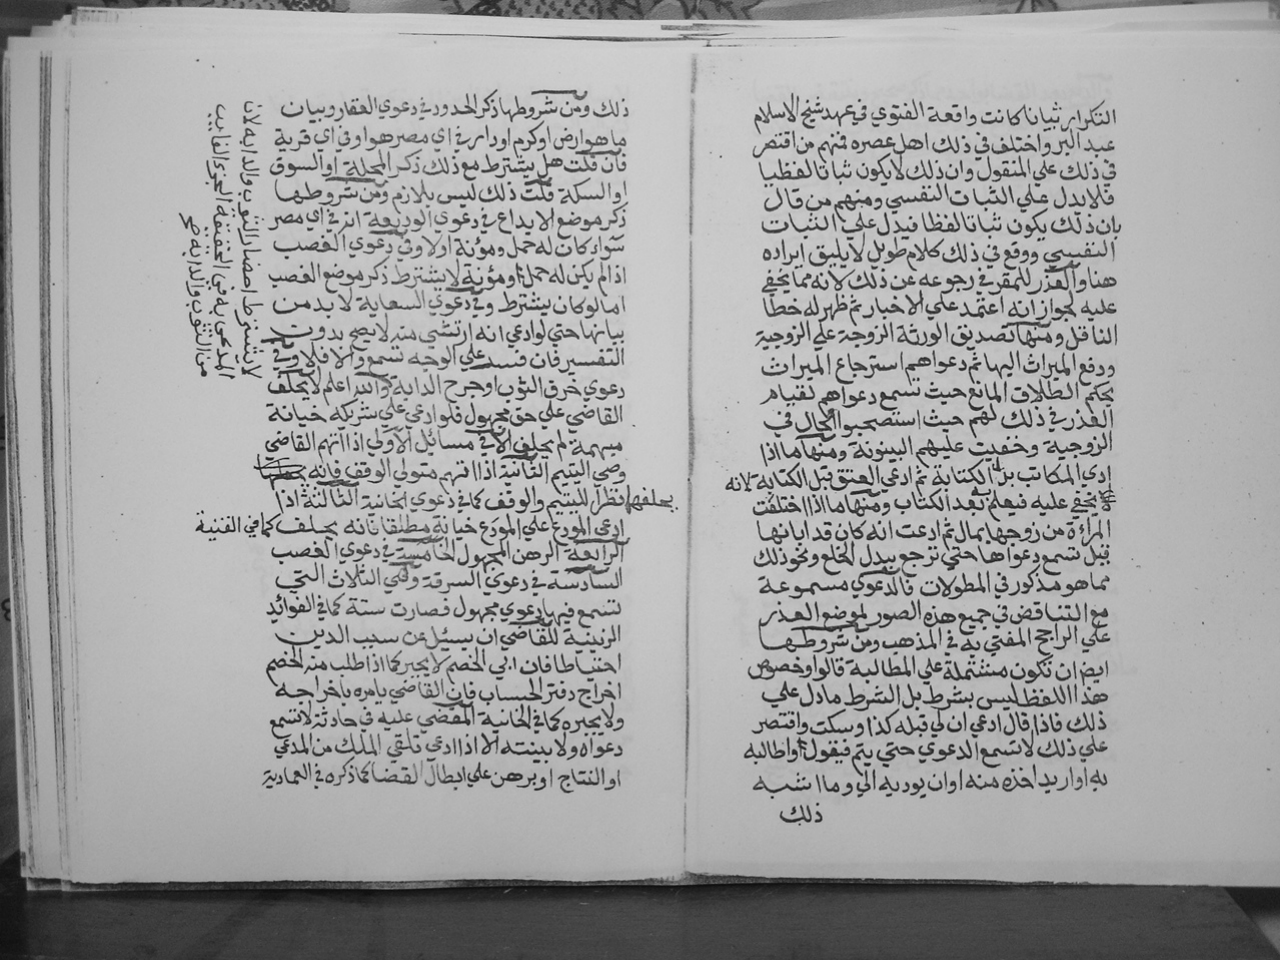 التكرار ثباتا كانت واقعة الفتوي في عهد شيخ الاسلام
عبد البر واختلف في ذلك اهل عصره فمنهم من اقتصر
في ذلك علي المنقول وان ذلك لا يكون ثباتا لفظيا
فلا يدل علي الثبات النفسي ومنهم من قال
بان ذلك يكون ثباتا لفظا فيدل علي الثبات
النفسي ووقع في ذلك كلام طويل لا يليق ايراده
هنا والعذر للمقر في رجوعه عن ذلك لانه مما يخفي
عليه لجواز انه اعتمد علي الاخبار ثم ظهر له خطا
الناقل ومنها تصديق الورثة الزوجة علي الزوجية
ودفع الميراث اليها ثم دعواهم استرجاع الميراث
بحكم الطلاق المانع حيث تسمع دعواهم لقيام
العذر في ذلك لهم حيث استصحبوا الحال في
الزوجية وخفيت عليهم البينونة ومنها ما اذا
ادي المكاتب بدل الكتابة ثم ادعي العتق قبل الكتابة لانه
يخفي عليه فيعلم بعد الكتاب ومنها ما اذا اختلعت
المراة من زوجها بمال ثم ادعت انه كان قد ابانها
قبل تسمع دعواها حتي ترجع ببدل الخلع ونحو ذلك
مما هو مذكور في المطولات فالدعوي مسموعة
مع التناقض في جميع هذه الصور لموضع العذر
علي الراجح المفتي به في المذهب ومن شروطها
ايضا ان تكون مشتملة علي المطالبة قالوا وخصوص
هذا اللفظ ليس بشرط بل الشرط ما دل علي
ذلك فاذا قال ادعي ان لي قبله كذا وسكت واقتصر
علي ذلك لا تسمع الدعوي حتي يتم فيقول واطالبه
به او اريد اخذه منه او ان يوديه الي وما اشبه
ذلك
ذلك ومن شروطها ذكر الحدود في دعوي العقار وبيان
ما هو ارض او كرم او دار في اي مصر هو او في اي قرية
فان قلت هل يشترط مع ذلك ذكر المحلة او السوق
او السكة قلت ذلك ليس بلازم ومن شروطها
ذكر موضع الايداع في دعوي الوديعة انه في اي مصر
سواء كان له حمل ومؤنة اولا وفي دعوي الغصب
اذا لم يكن له حمل ومؤنة لا يشترط ذكر موضع الغصب
اما لو كان يشترط وفي دعوي السعاية لا بد من
بيانها حتي لو ادعي انه ارتشي منه لا يصح بدون
التفسير فان فسد علي الوجه تسمع والا فلا
دعوي خرق الثوب او جرح الدابة والله اعلم لا يحلف
القاضي علي حق مجهول فلو ادعي علي شريكه خيانة
مبهمة لم يحلف الا في مسائل الاولي اذا اتهم القاضي
وصي اليتيم الثانية اذا اتهم متولي الوقف فانه
يحلفها نظرا لليتيم والوقف كما في دعوي الخانية الثالثة اذا
ادعي المودع علي المودع خيانة مطلقا فانه يحلف كما في القنية
الرابعة الرهن المجهول الخامسة في دعوي الغصب
السادسة في دعوي السرقة وهي الثلاث التي
تسمع فيها دعوي مجهول فصارت ستة كما في الفوائد
الزينية للقاضي ان يسئل عن سبب الدين
احتياطا فان ابي الخصم لا يجبر كما اذا طلب منه الخصم
اخراج دفتر الحساب فان القاضي يامره باخراجه
ولا يجبره كما في الخانية المقضي عليه في حادثة لا تسمع
دعواه ولا بينته الا اذا ادعي تلقي الملك من المدعي
او النتاج او برهن علي ابطال القضا كما ذكره في العمادية
لا يشترط احضار الثوب والدابة لان
المدعي به في الحقيقة الجزء الفايت
من الثوب والدابة صح